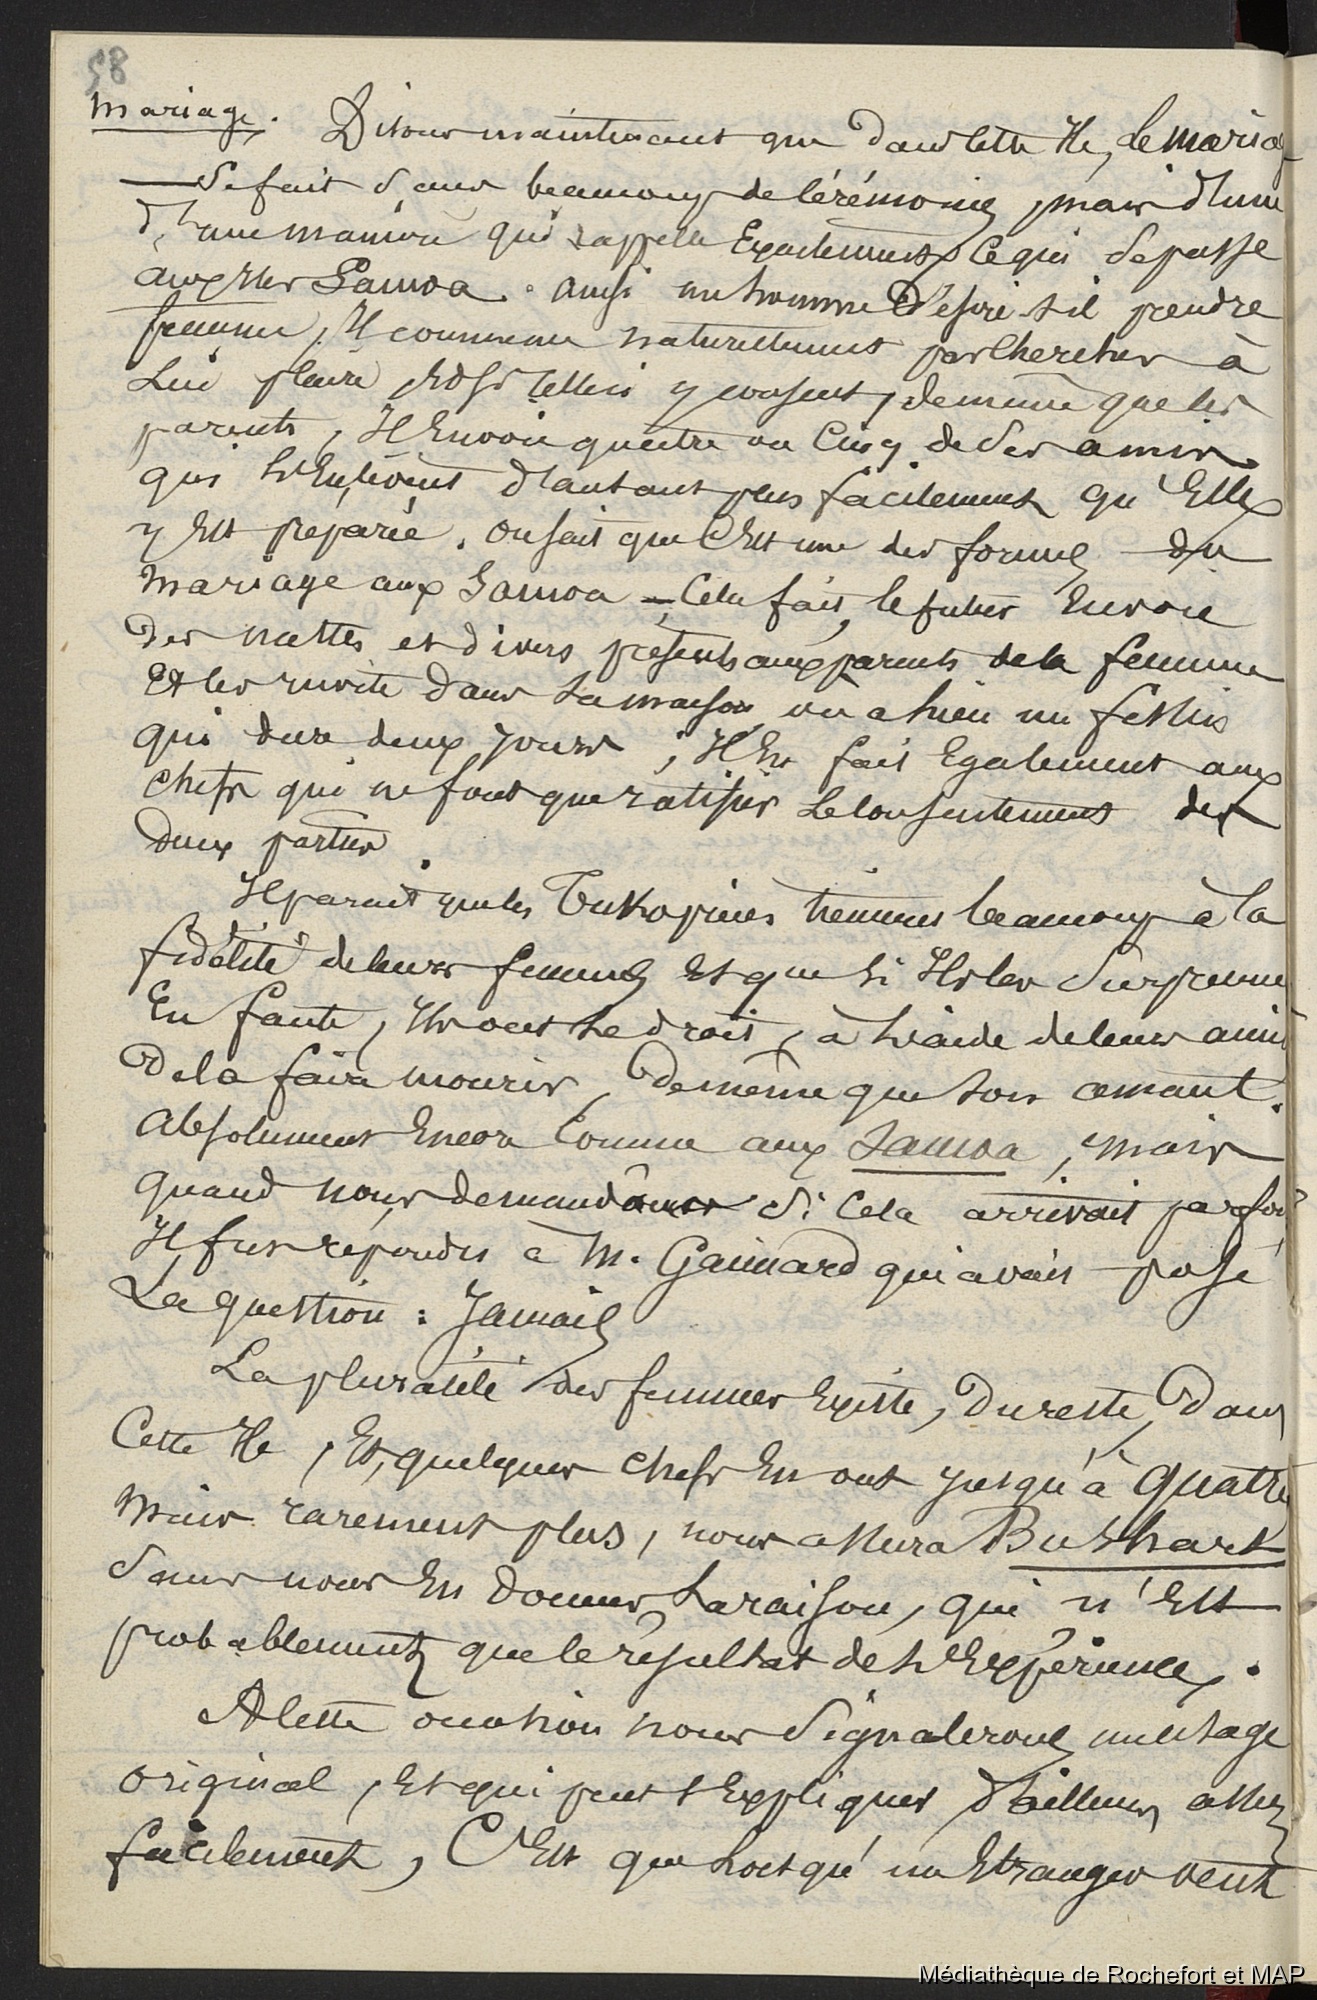 58
Mariage. Disons maintenant que dans cette Ile, le mariage
se fait sans beaucoup de cérémonies, mais d'une
d'une manière qui rappelle Exactement ce qui se passe
aux Iles Samoa. ainsi un homme Désire-t-il prendre
femme, Il commence naturellement par chercher à
lui plaire, Et si celle-ci y consent, de même que les
parents, Il Envoie quatre ou Cinq de Ses amis
qui l'Enlèvent d'autant plus facilement qu'Elle
y Est préparée. on sait que C'Est une des formes du
Mariage aux Samoa - Cela fait, le futur Envoie
Des nattes et divers présents aux parents de la femme
Et les invite dans sa maison, où a lieu un festin
qui dure deux jours ; Il En fait Egalement aux
chefs qui ne font que ratifier Le Consentement des
deux parties.
Il parait que les Tukopiens tiennent beaucoup à la
fidélité de leurs femmes Et que si Ils les Surprennent
En faute, Ils ont le droit, à l'aide de leurs amis
De la faire mourir, De même que son amant.
Absolument Encore Comme aux Samoa, mais
quand nous demandâmes Si Cela arrivait parfois
Il fut répondu à M. Gaimard qui avait posé
La question : Jamais
La pluralité des femmes Existe, Du reste, Dans
Cette Ile, Et, quelques chefs En ont jusqu'à quatre
Mais rarement plus, nous assura Bushart
Sans nous En donner La raison, qui n'Est
probablement que le résultat de l'Expérience.
A Cette occasion nous Signalerons un usage
original, Et qui peut s'Expliquer d'ailleurs assez
facilement, C'Est que lorsqu'un Etranger veut
Médiathèque de Rochefort et MAP